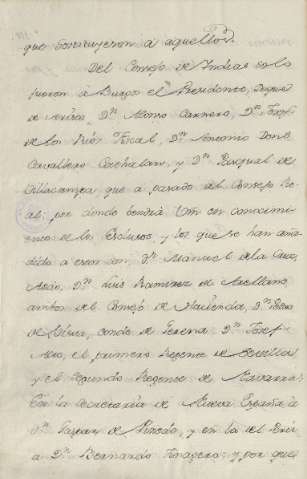 que sostituyeron á aquellos.
Del Consejo de Indias solo
fueron á Burgos el Presidente, Duque
de D.n Alonso Carnero, D.n Josef
de los Rios Fiscal, D.n Antonio
Cavallero y D.n Pasqual de
Villacampa que a pasado del Consejo Re-
al; por donde vendrá Vm en conocimi-
ento de los Exclusos, y los que se han aña-
dido á estos son D.n Manuel de la Cruz
D.n Luis Ramirez de Arellano,
ambos del Consejo de Hacienda, D.n
de conde de Gerena D.n Josef
el primero Regente de Sevilla
y el segundo Regente de Navarra:
En la Secretaría de Nueva España á
D.n Gaspar de Pinedo, y en la del Perú
á D.n Bernardo Tinagero; y por que